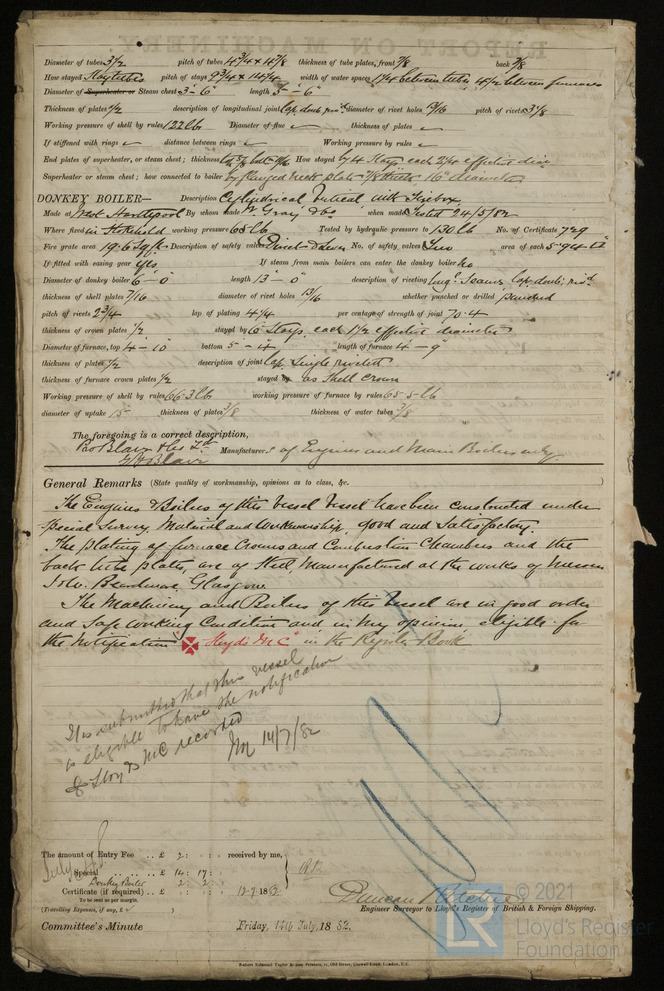 Diameter of tubes 3 1/2 pitch of tubes 4 3/4 x 4 7/8 thickness of tube plates, front 7/8 back 7/8
How stayed Stay tubes pitch of stays 9 3/4 x 14 1/4 width of water spaces 1 1/4 between tubes, 4 1/2 between furnaces
Diameter of Superheater or Steam chest 3 - 6" length 5 - 6"
Thickness of plates 1/2 description of longitudinal joint Lap, doub rivd diameter of rivet holes 13/16 pitch of rivets 3 1/8
Working pressure of shell by rules 122 lb Diameter of flue ✓ thickness of plates ✓
If stiffened with rings ✓ distance between rings ✓ Working pressure by rules ✓
End plates of superheater, or steam chest; thickness How stayed by 4 Stays each 2 1/4 effective dia
Superheater or steam chest; how connected to boiler by flanged neck plate 7/8 thick 16" diameter
DONKEY BOILER— Description Cylindrical Vertical with Firebox
Made at West Hartlepool By whom made W Gray & Co when made Tested 24/5/82
Where fixed in Stokehold working pressure 65 lb Tested by hydraulic pressure to 130 lb No. of Certificate 729
Fire grate area 19.6 Sq ft Description of safety valves Direct No. of safety valves Two area of each 5.94 □"
If fitted with easing gear Yes If steam from main boilers can enter the donkey boiler No
Diameter of donkey boiler 6'-0" length 13'-0" description of riveting Long. Seams, Lap, doub; rivd
thickness of shell plates 7/16 diameter of rivet holes 13/16 whether punched or drilled punched
pitch of rivets 2 3/4 lap of plating 4 1/4 per centage of strength of joint 70.4
thickness of crown plates 1/2 stayed by 6 Stays, each 1 1/2 effective diameter
Diameter of furnace, top 4'-10" bottom 5'-4" length of furnace 4'-9"
thickness of plates 1/2 description of joint Lap, Single rivetted
thickness of furnace crown plates 1/2 stayed by as Shell Crown
Working pressure of shell by rules 66.3 lb working pressure of furnace by rules 65.5 lb
diameter of uptake 15 thickness of plates 3/8 thickness of water tubes 3/8
The foregoing is a correct description,
Pro Blair & Co Ld Manufacturer. of Engines and Main Boilers only
Blair
General Remarks (State quality of workmanship, opinions as to class, &c. )
The Engines & Boilers of this Vessel Vessel have been constructed under
special Survey, Material and Workmanship, good and Satisfactory.
The plating of furnace Crowns and Combustion Chambers and the
back tube plates, are of Steel, Manufactured at the works of Messrs
Beardmore, Glasgow
The Machinery and Boilers of this Vessel are in good order
and Safe Working Condition and in my opinion eligible for
the notification ✠ Lloyd's MC" in the Register Book
It is submitted that this vessel
is eligible to have the notification
of Lloyds MC recorded
14/7/82
The amount of Entry Fee .. £ 2 : : received by me,
Special .. £ 14 : 17 :
Donkey Boiler 2 : 2 :
Certificate (if required) .. £ : : 12-7 1882
To be sent as per margin.
(Travelling Expenses, if any, £ ✓ )
Duncan Ritchie
Engineer Surveyor to Lloyd's Register of British & Foreign Shipping.
Committee's Minute Friday, 14th July, 18 82.
© 2021
LR
Lloyd's Register
Foundation